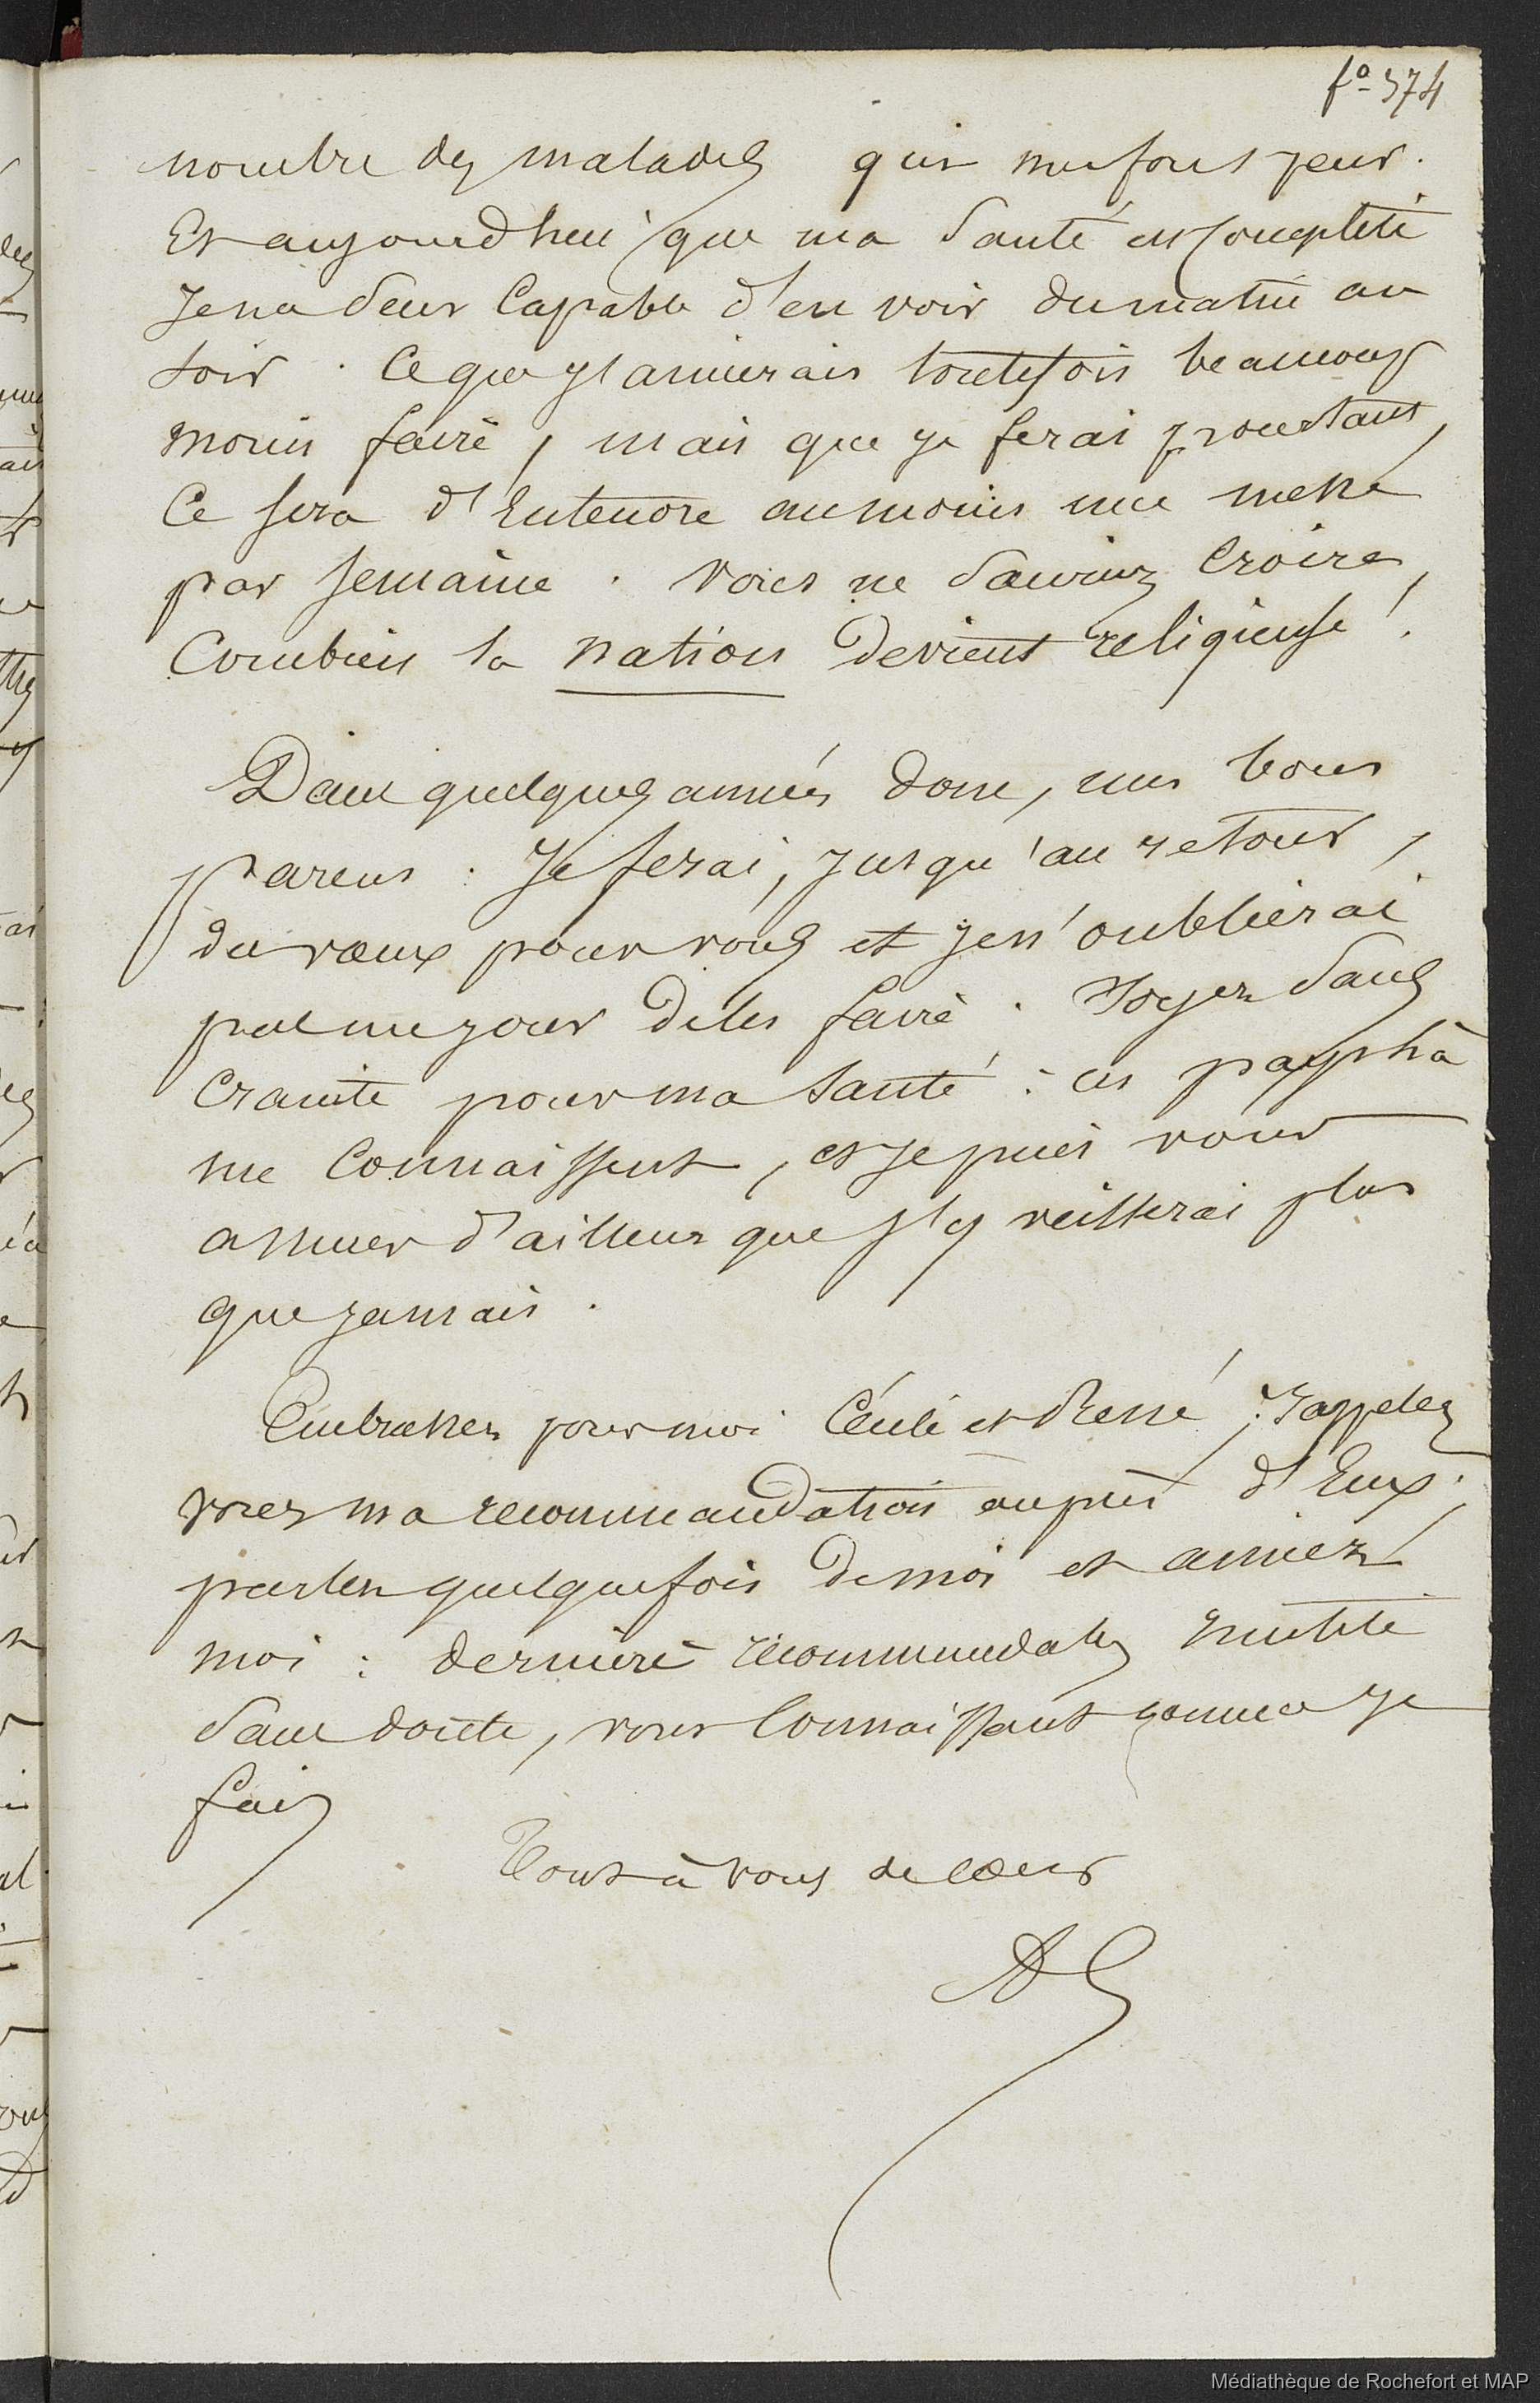 fo 374
nombre des malades qui me font peur.
Et aujourd'hui que ma santé est complète
Je me sens capable d'en voir du matin au
soir. Ce que j'aimerais toutefois beaucoup
moins faire, mais que je ferai pourtant,
Ce sera d'Entendre au moins une messe
par semaine. vous ne sauriez Croire,
Combien la nation devient religieuse!
Dans quelques années donc, mes bons
parens: Je ferai, jusqu'au retour,
des vœux pour vous et je n'oublierai
pas un jour de les faire. Soyez sans
Crainte pour ma santé: ces pays là
me Connaissent, et je puis vous
assurer d'ailleurs que j'y veillerai plus
que jamais.
Embrassez pour moi Cécile et René; Rappelez
vous ma recommandation auprès d'Eux;
parlez quelquefois de moi et aimez
moi: dernière recommandation inutile
sans doute, vous Connaissant comme je
fais
Tout à vous de cœur
AL
Médiathèque de Rochefort et MAP